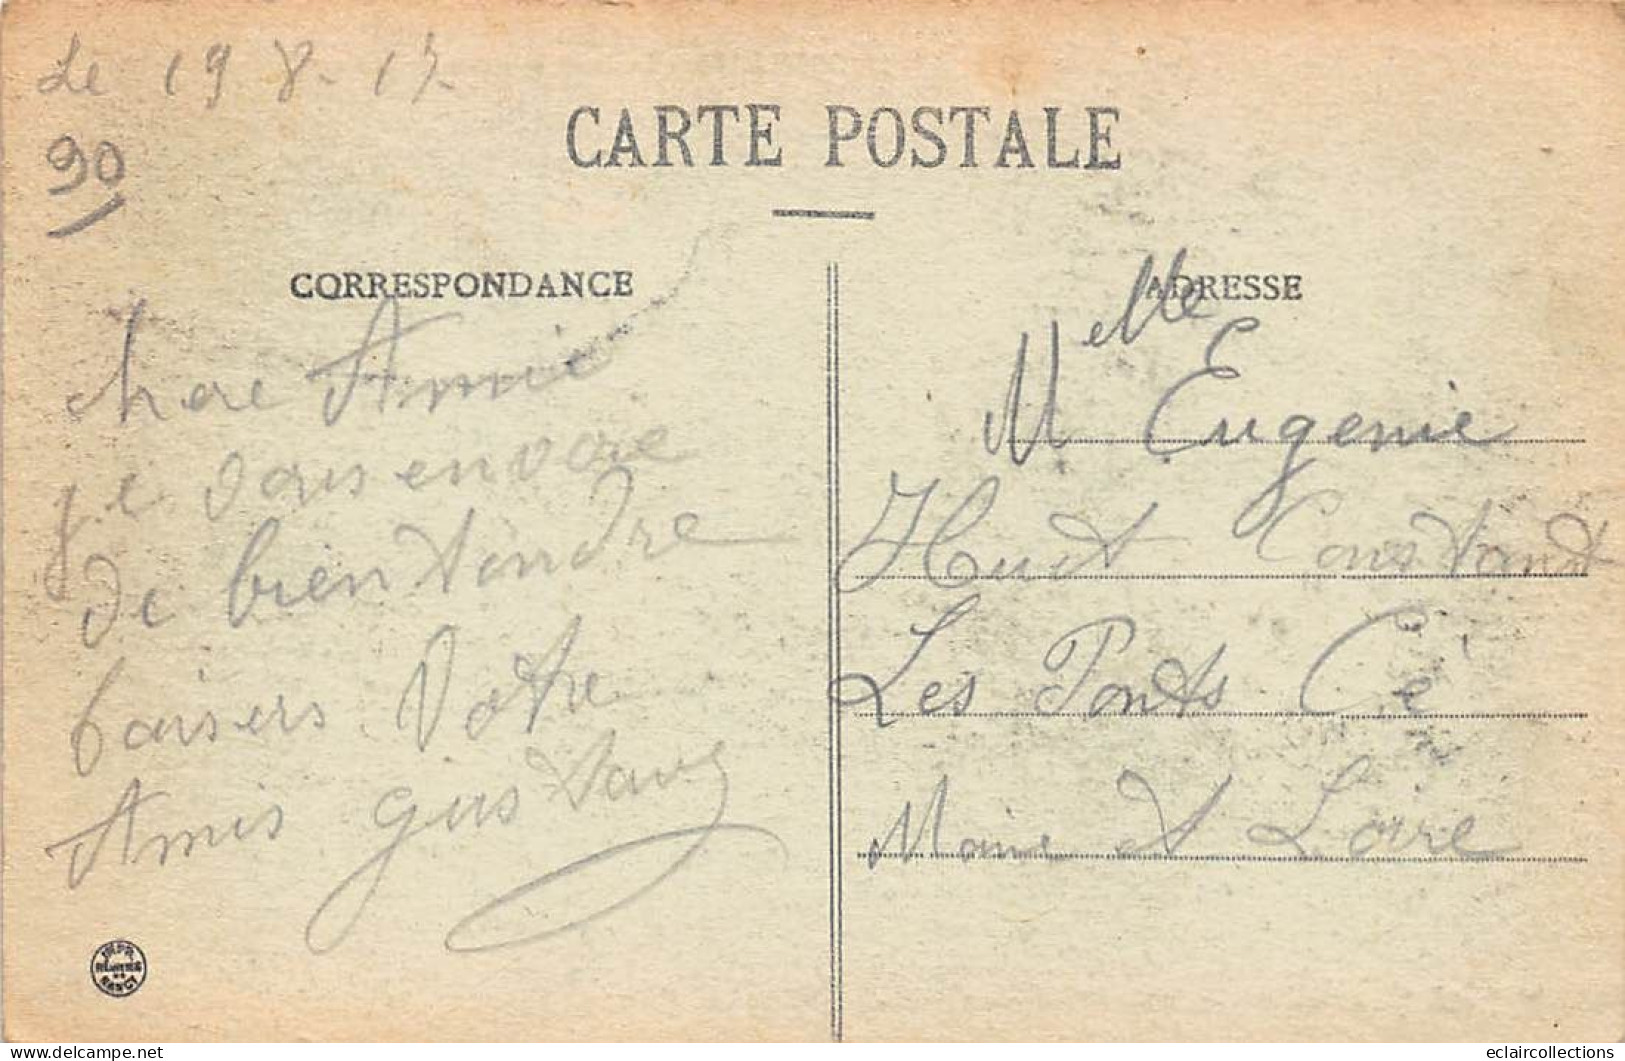 Le 19 8. 17
90
CARTE POSTALE
CORRESPONDANCE
chere Amie
je vous envoie
de bien tendre
baisers Votre
Amis gustave
ADRESSE
Melle Eugenie
Huet Constant
Les Ponts Cé
Maine et Loire
IMPR
REUNIES
DE
NANCY
delcampe.net
eclaircollections